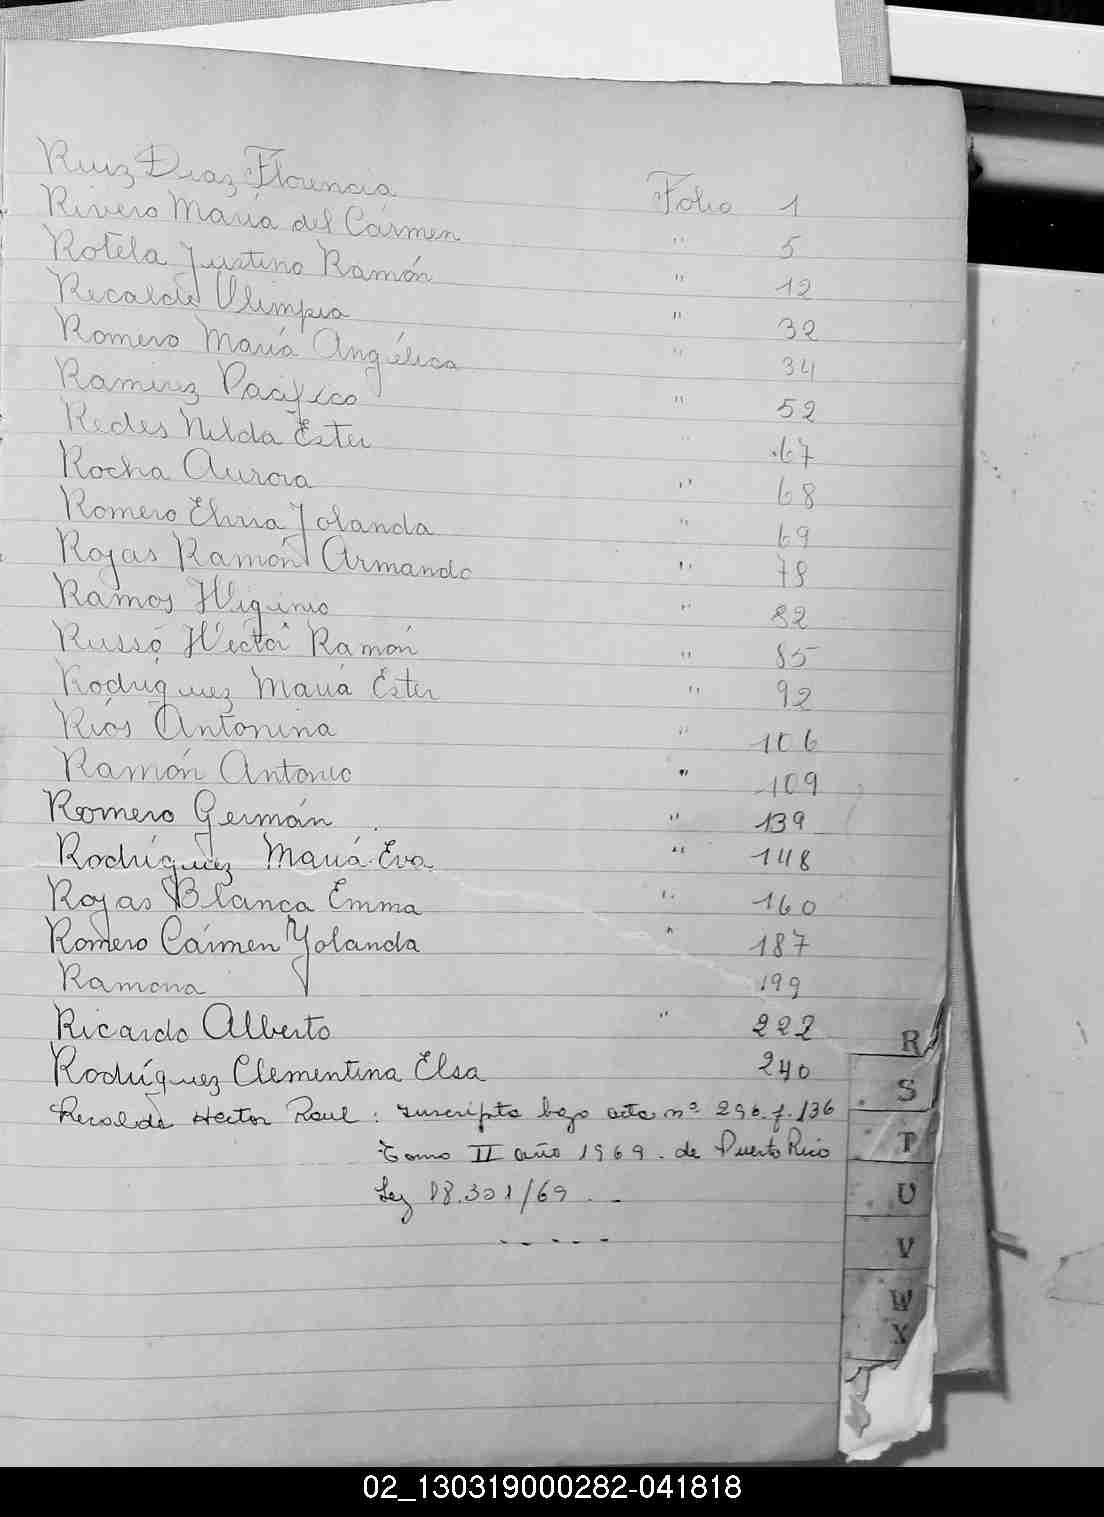 Ruiz Diaz Florencia Folio 1
Rivero María del Carmen " 5
Rotela Justino Ramón " 12
Recalde Olimpia " 32
Romero María Angélica " 34
Ramirez Pacífico " 52
Redes Nilda Ester " 67
Rocha Aurora " 68
Romero Elvira Yolanda " 69
Rojas Ramón Armando " 78
Ramos Higinio " 82
Russo Héctor Ramón " 85
Rodríguez María Ester " 92
Ríos Antonina " 106
Ramón Antonio " 109
Romero Germán " 139
Rodríguez María Eva " 148
Rojas Blanca Emma " 160
Romero Carmen Yolanda " 187
Ramona 199
Ricardo Alberto " 222
Rodríguez Clementina Elsa 240
Recalde Hector Raul : inscripto bajo acta nº 296. f. 136
Tomo II año 1969. de Puerto Rico
Ley 18.301/69. -
- - - - -
R
S
T
U
V
W
X
02_130319000282-041818